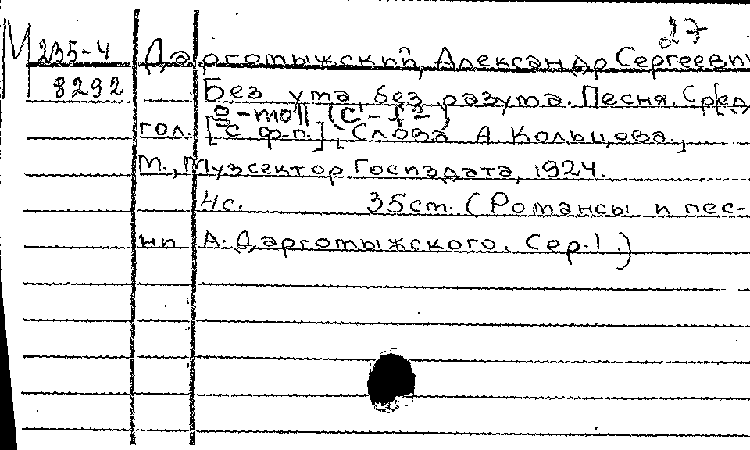 27
М 235-4 Даргомыжский, Александр Сергеевич
8292 Без ума, без разума. Песня. Сред.
e-moll (c¹-f²)
гол. [с ф-п.], Слова А. Кольцева.,
М., Музсектор Госиздата, 1924.
4с. 35см. (Романсы и пес-
ни А. Даргомыжского. Сер. I.)